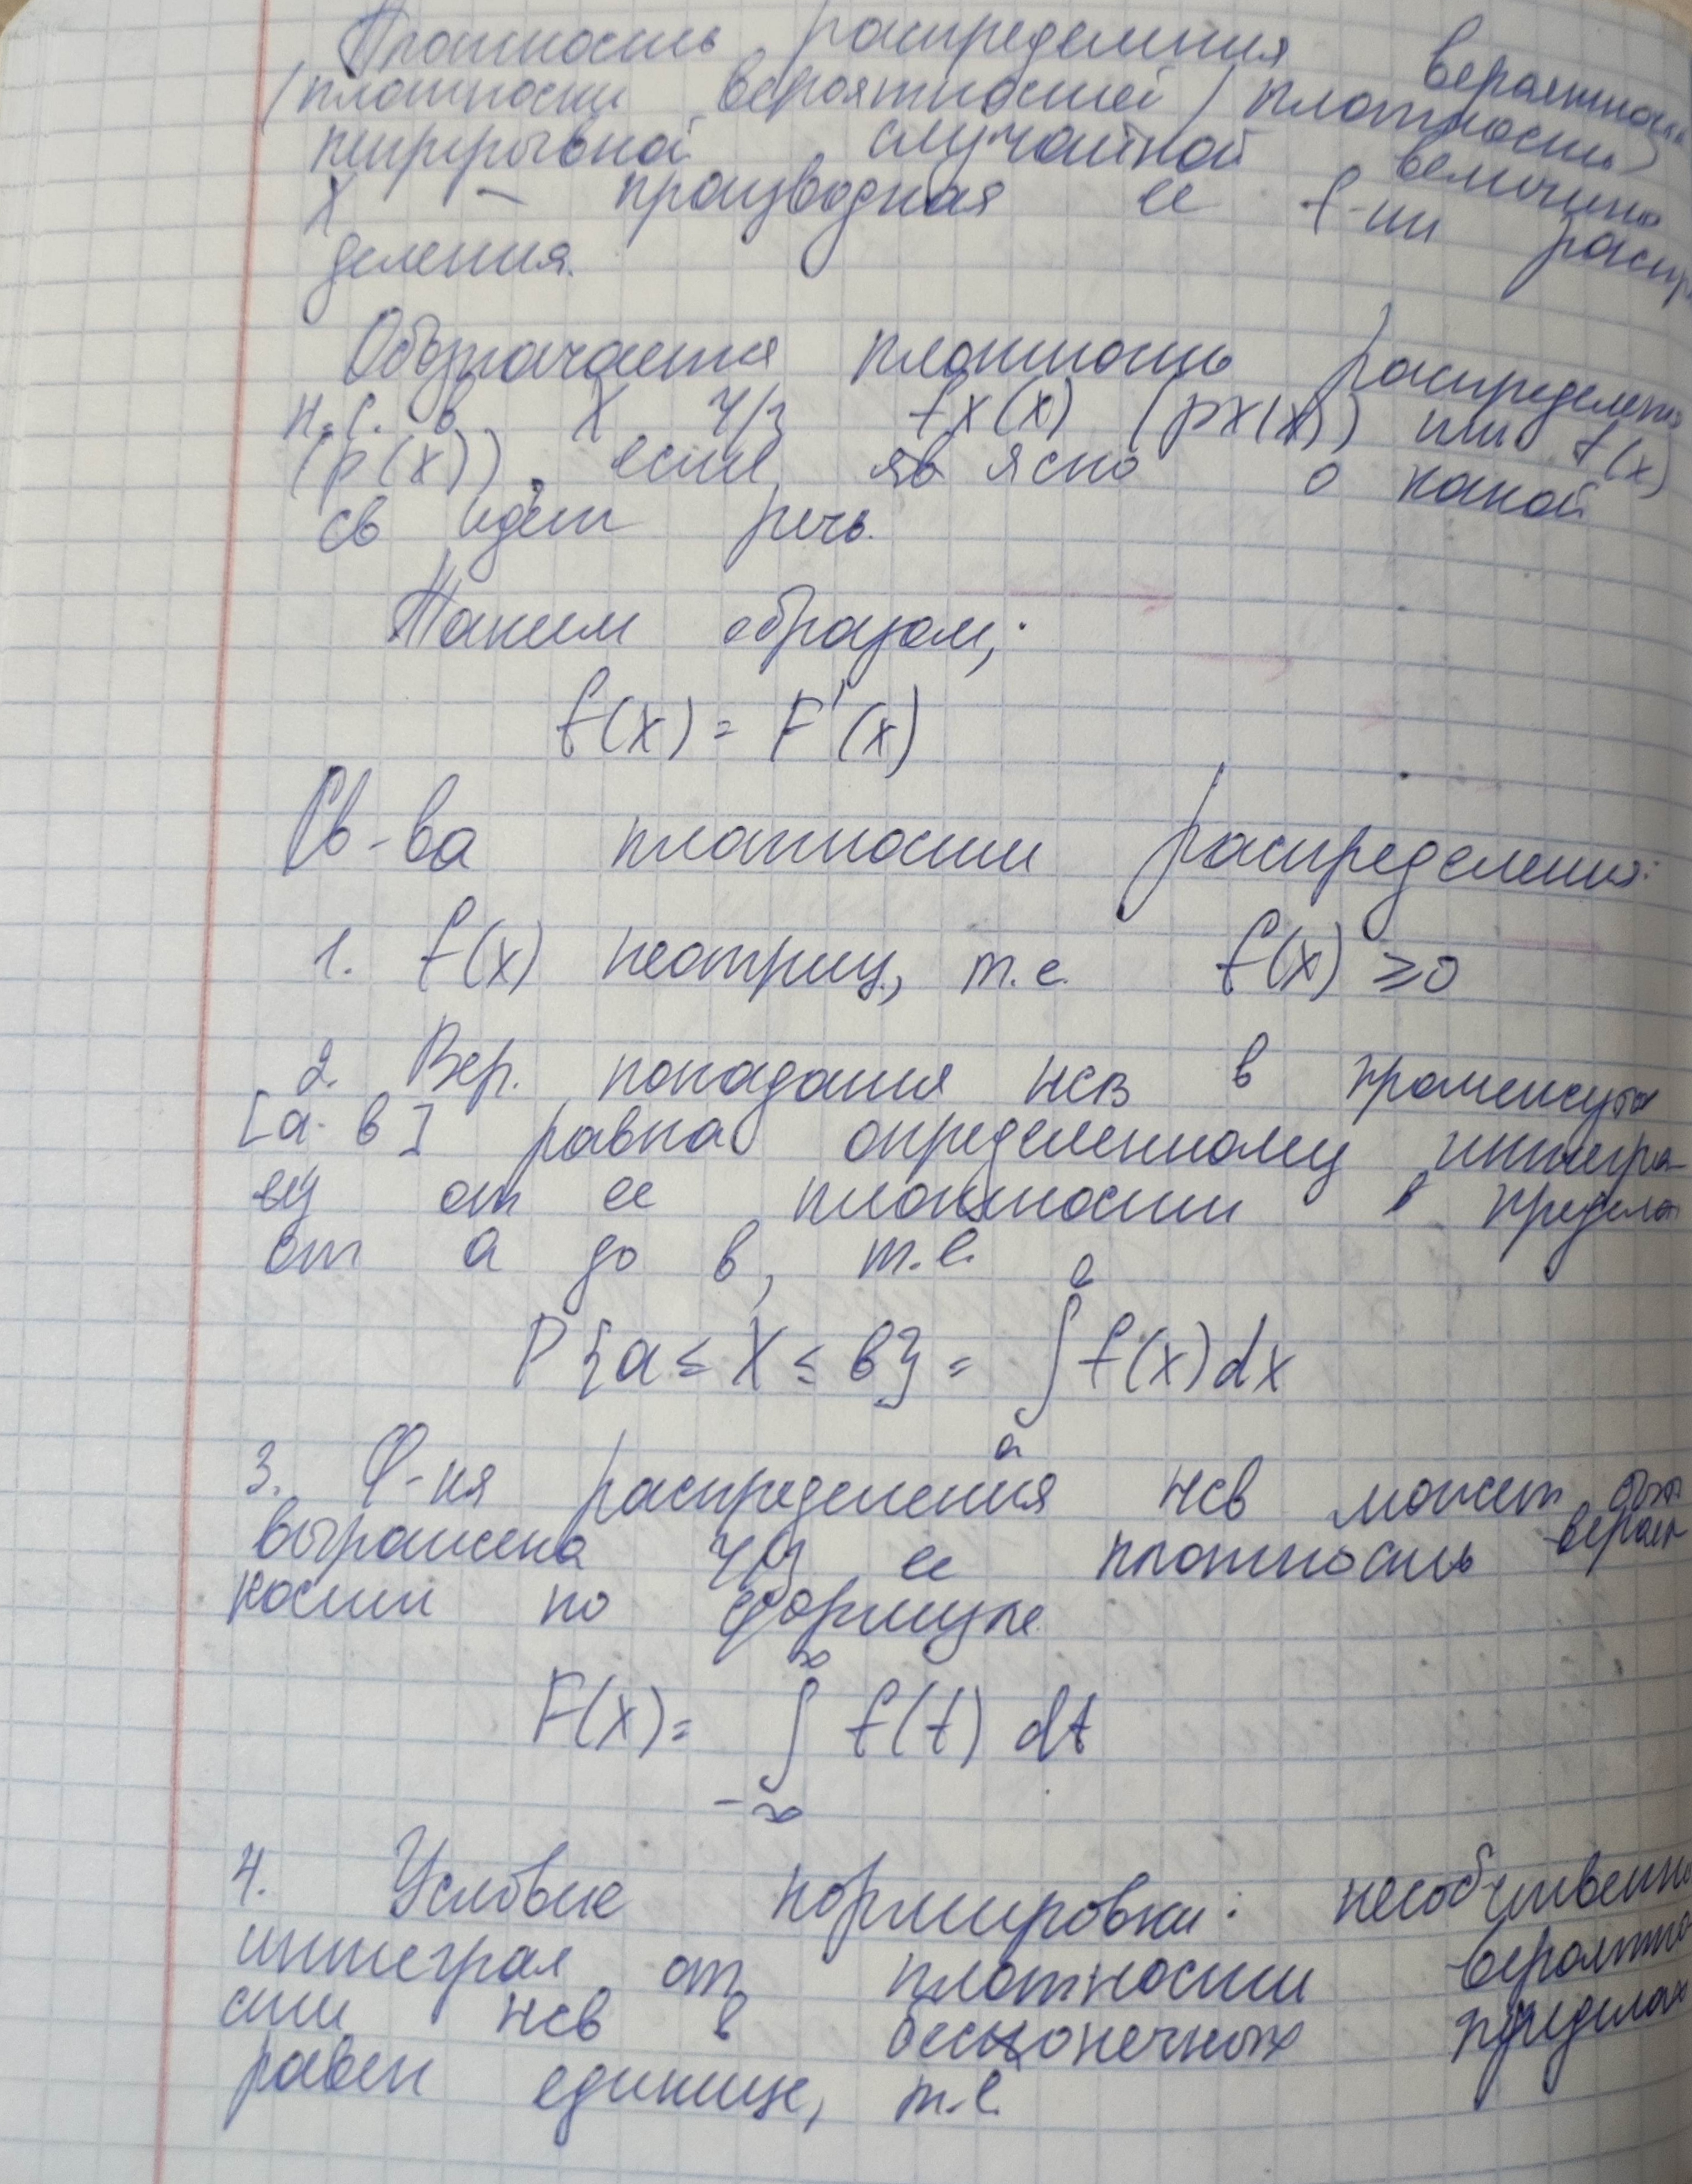 Плотность распределения вероятност
(плотности вероятностей / плотность)
непрерывной случайной величины
X - производная ее f-ии распр
деления.
Обозначается плотность распределения
н.с.в. X ч/з fX(x) (pX(x)) или f(x)
(p(x)), если яв ясно о какой
св идет речь.
Таким образом,:
f(x) = F'(x)
Св-ва плотности распределения:
1. f(x) неотриц., т.е. f(x) ≥ 0
2. Вер. попадания нсв в промежуток
[a. в] равна определенному интегра-
лу от ее плотности в пределах
от а до в, т.е.
P{a ≤ X ≤ в} = ∫ₐᵉ f(x)dx
3. Ф-ия распределения нсв может быть
выражена ч/з ее плотность вероят
ности по формуле
F(x) = ∫ f(t) dt
-∞ ∞
4. Условие нормировки: несобственн
интеграл от плотности вероятно
сти нсв в бесконечных пределах
равен единице, т.е.